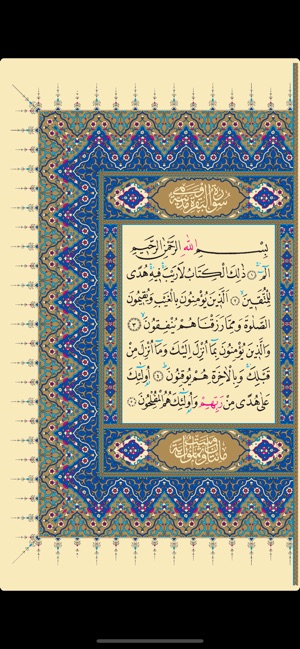 سورة البقرة مدنية
بِسْمِ اللهِ الرَّحْمٰنِ الرَّحِيمِ
الٓمٓ ۚ ﴿١﴾ ذٰلِكَ الْكِتَابُ لَا رَيْبَ ۛ فِيهِ ۛ هُدًى
لِلْمُتَّقِينَ ۙ ﴿٢﴾ اَلَّذِينَ يُؤْمِنُونَ بِالْغَيْبِ وَيُقِيمُونَ
الصَّلٰوةَ وَمِمَّا رَزَقْنَاهُمْ يُنْفِقُونَ ۙ ﴿٣﴾
وَالَّذِينَ يُؤْمِنُونَ بِمَٓا اُنْزِلَ اِلَيْكَ وَمَٓا اُنْزِلَ مِنْ
قَبْلِكَ ۚ وَبِالْاٰخِرَةِ هُمْ يُوقِنُونَ ۜ ﴿٤﴾ اُو۬لٰٓئِكَ
عَلٰى هُدًى مِنْ رَبِّهِمْ وَاُو۬لٰٓئِكَ هُمُ الْمُفْلِحُونَ ﴿٥﴾